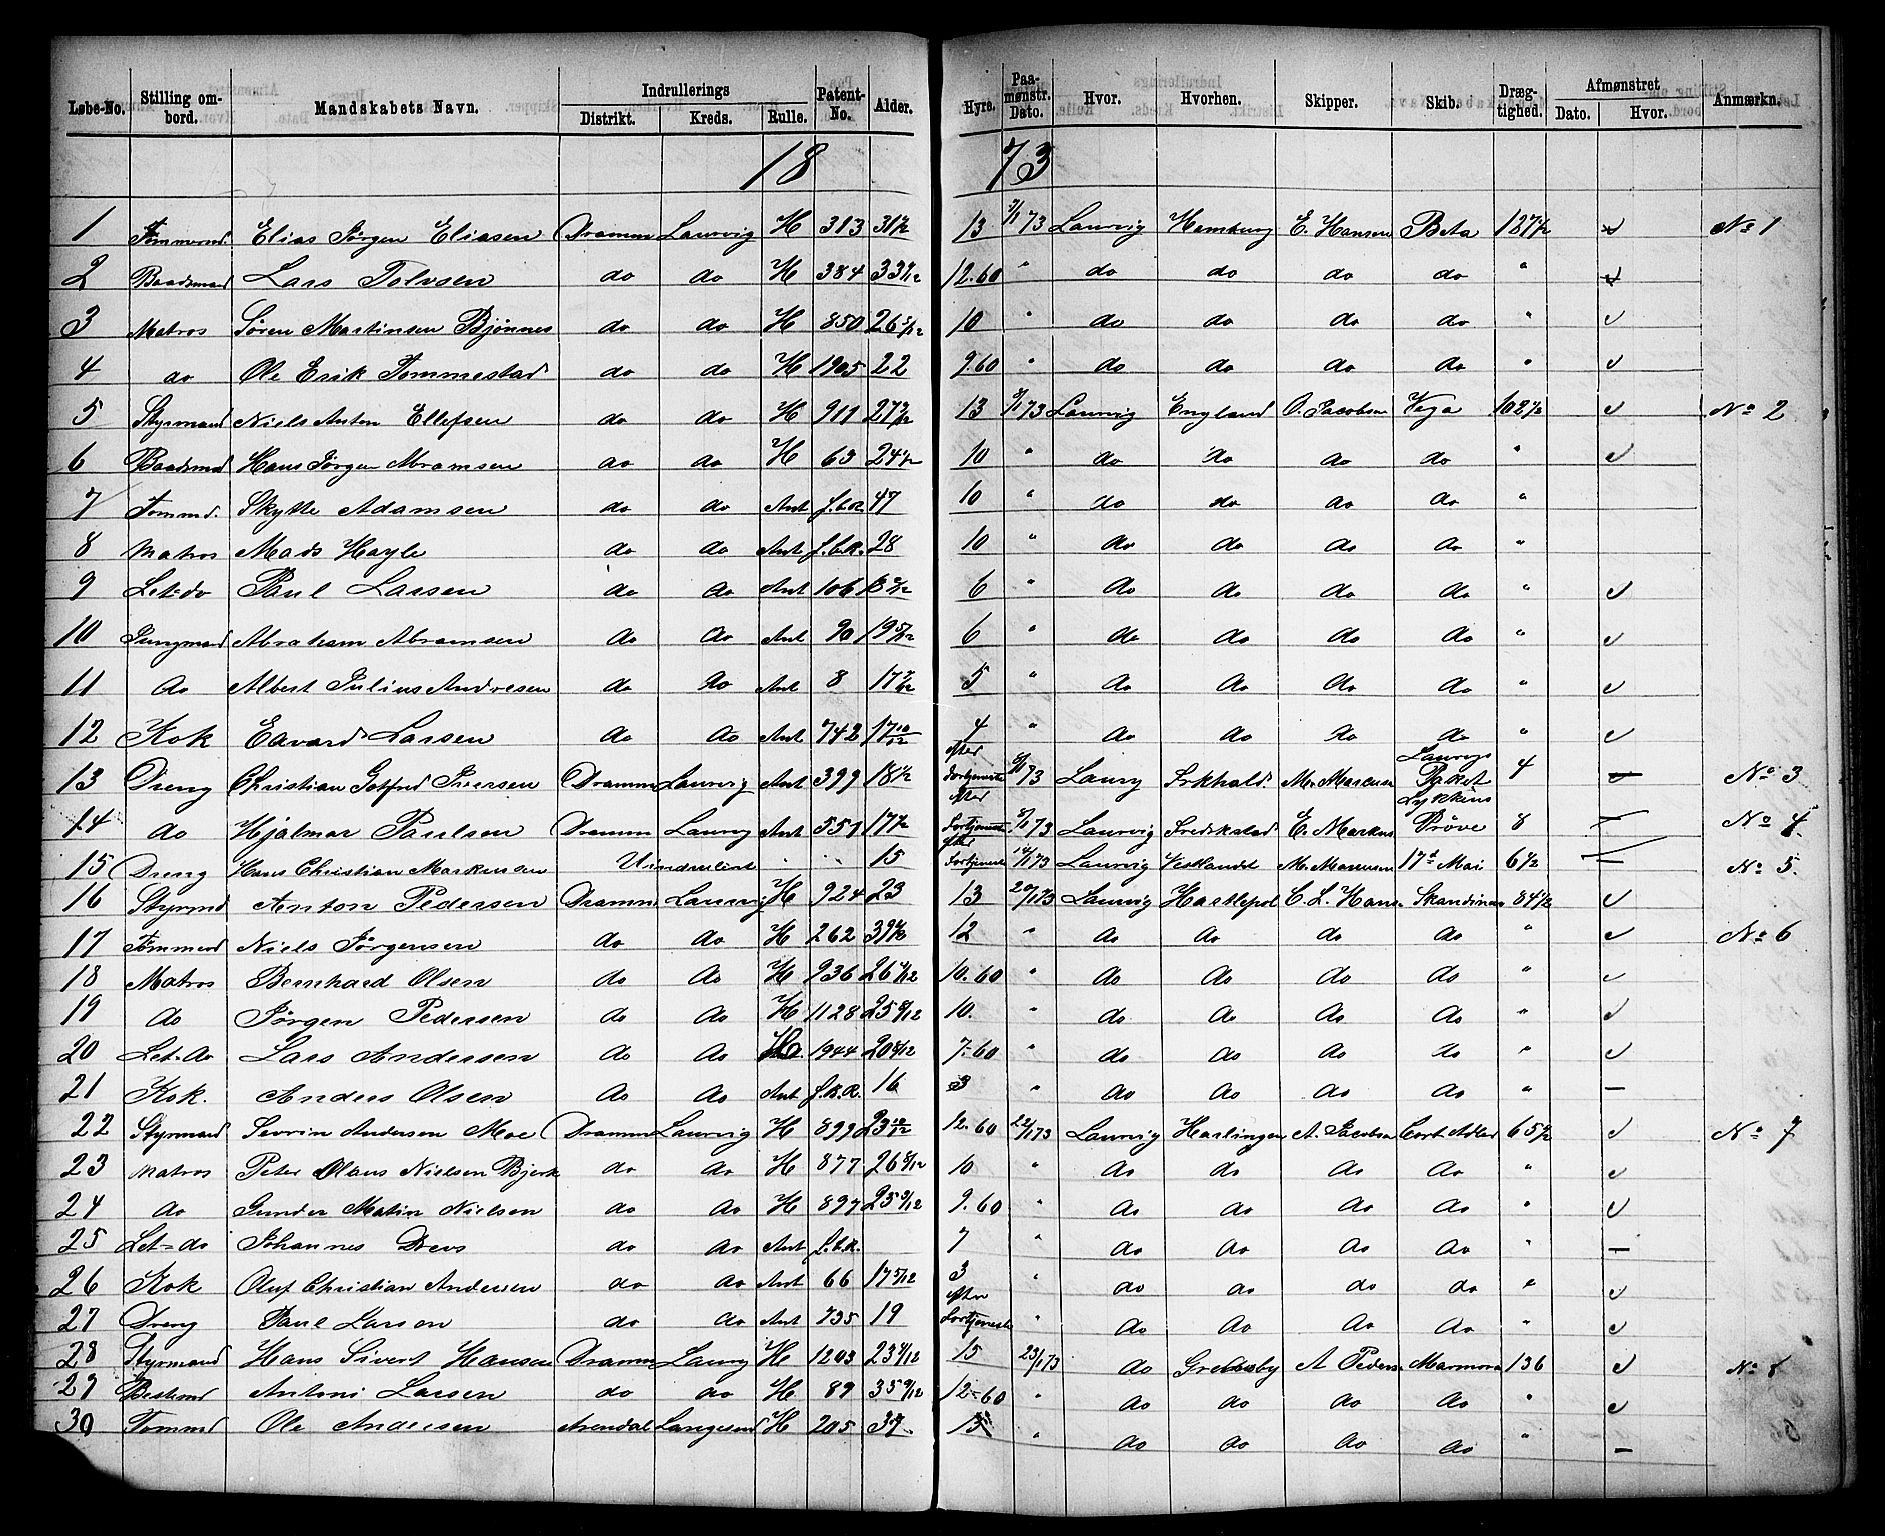 Løbe-No. Stilling ombord. Mandskabets Navn. Indrullerings Distrikt. Kreds. Rulle. Patent-No. Alder. Hyre. Paamønstr. Dato. Hvor. Hvorhen. Skipper. Skib. Drægtighed. Afmønstret Dato. Hvor. Anmærkn.
18 73
1 Tømmermd. Elias Jørgen Eliasen Dramm Laurvig H 313 13 Laurvig Hamburg E. Hansen Beta No 1
2 Baadsmand Lars Tolvsen do do H 384 33 12.60 " do do do do "
3 Matros Søren Martinsen Bjønnes do do H 850 26 10 " do do do do "
4 do Ole Erik Tommestad do do H 1905 22 9.60 " do do do do "
5 Styrmand Niels Anton Ellefsen do do H 911 27 13 Laurvig England O. Jacobsen Vega No 2
6 Baadsmd Hans Jørgen Abramsen do do H 63 24 10 " do do do do "
7 Tømmd. Skytte Adamsen do do Ant 47 10 " do do do do "
8 Matros Mads Hayle do do Ant f.b.R. 28 10 " do do do do "
9 Let-do Paul Larsen do do Ant 106 6 " do do do do "
10 Jungmand Abraham Abramsen do do Ant 90 19 5/12 6 " do do do do "
11 do Albert Julius Andresen do do Ant 8 17 5 " do do do do "
12 Kok Edvard Larsen do do Ant 742 17 10/12 4 " do do do do "
13 Dreng Christian Gotfred Iversen Dramm Laurvig Ant 399 18 1/2 efter fortjeneste Laurv M. Marcusen Laurvigs Paket 4 No 3
14 do Hjalmar Paulsen Dramm Laurv Ant 551 17 efter fortjeneste Laurvig Fredrikstad E. Markus Lykkens Prøve 8 No 4.
15 Dreng Hans Christian Markussen Uindrulert " " 15 efter fortjeneste 14/1 73 Laurvig Vestlandet M. Marcusen 17d Mai 6 1/2 No 5.
16 Styrmd Anton Pedersen Dramm Laurvig H 924 23 13 20/1 73 Laurvig Hartlepol C. L. Hans. Skandinav 84 1/2
17 Tømmermd Niels Jørgensen do do H 262 39 12 " do do do do " No 6
18 Matros Bernhard Olsen do do H 936 26 10.60 " do do do do "
19 do Jørgen Pedersen do do H 1128 25 10. " do do do do "
20 Let-do Lars Andersen do do 1944 20 7-60 " do do do do "
21 Kok. Anders Olsen do do Ant f.b.R. 16 3 " do do do do "
22 Styrmand Sevrin Andersen Moe Dramm Laurvig H 899 23 10/12 12.60 22/1 73 Laurvig Harlingen A. Jacobsen Cort Adler 65 1/2 No 7
23 Matros Peter Olaus Nielsen Bjerk do do H 877 26 8/12 10 " do do do do "
24 do Gunder Matin Nielsen do do H 897 25 9.60 " do do do do "
25 Let-do Johannes Drevs do do Ant f.b.R. 7 " do do do do "
26 Kok Oluf Christian Andersen do do Ant 66 17 5/12 3 " do do do do "
27 Dreng Paul Larsen do do Ant 735 19 efter fortjeneste " do do do do "
28 Styrmand Hans Sivert Hansen Dramm Laurv H 1203 23 15 23/1 73 do A Peders Marmora 136 No 8
29 Bestmd Antoni Larsen do do H 89 35 9/12 12-60 " do do do do "
30 Tømmd Ole Andersen Arendal Langesund H 205 37 " do do do do "